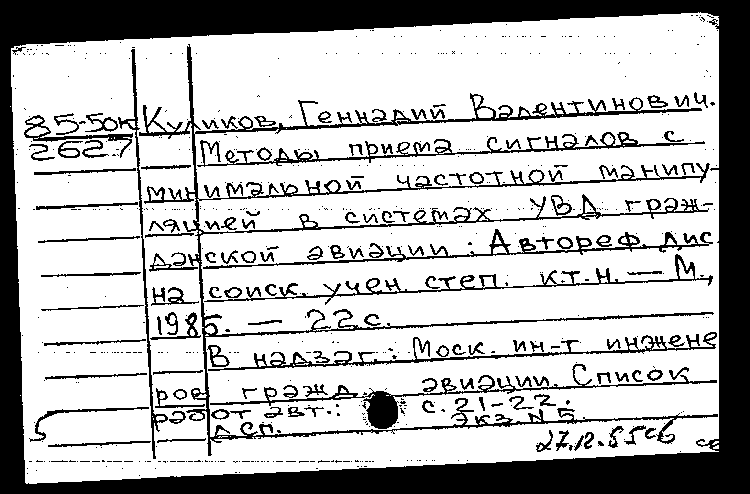 85-50к Куликов, Геннадий Валентинович.
2627 Методы приема сигналов с
минимальной частотной манипу-
ляцией в системах УВД граж-
данской авиации: Автореф. дис.
на соиск. учен. степ. к.т.н. — М.,
1985. — 22 с.
В надзаг.: Моск. ин-т инжене
ров гражд. авиации. Список
работ авт.: с. 21-22.
ДСП. Экз. N 5.
27.12.85